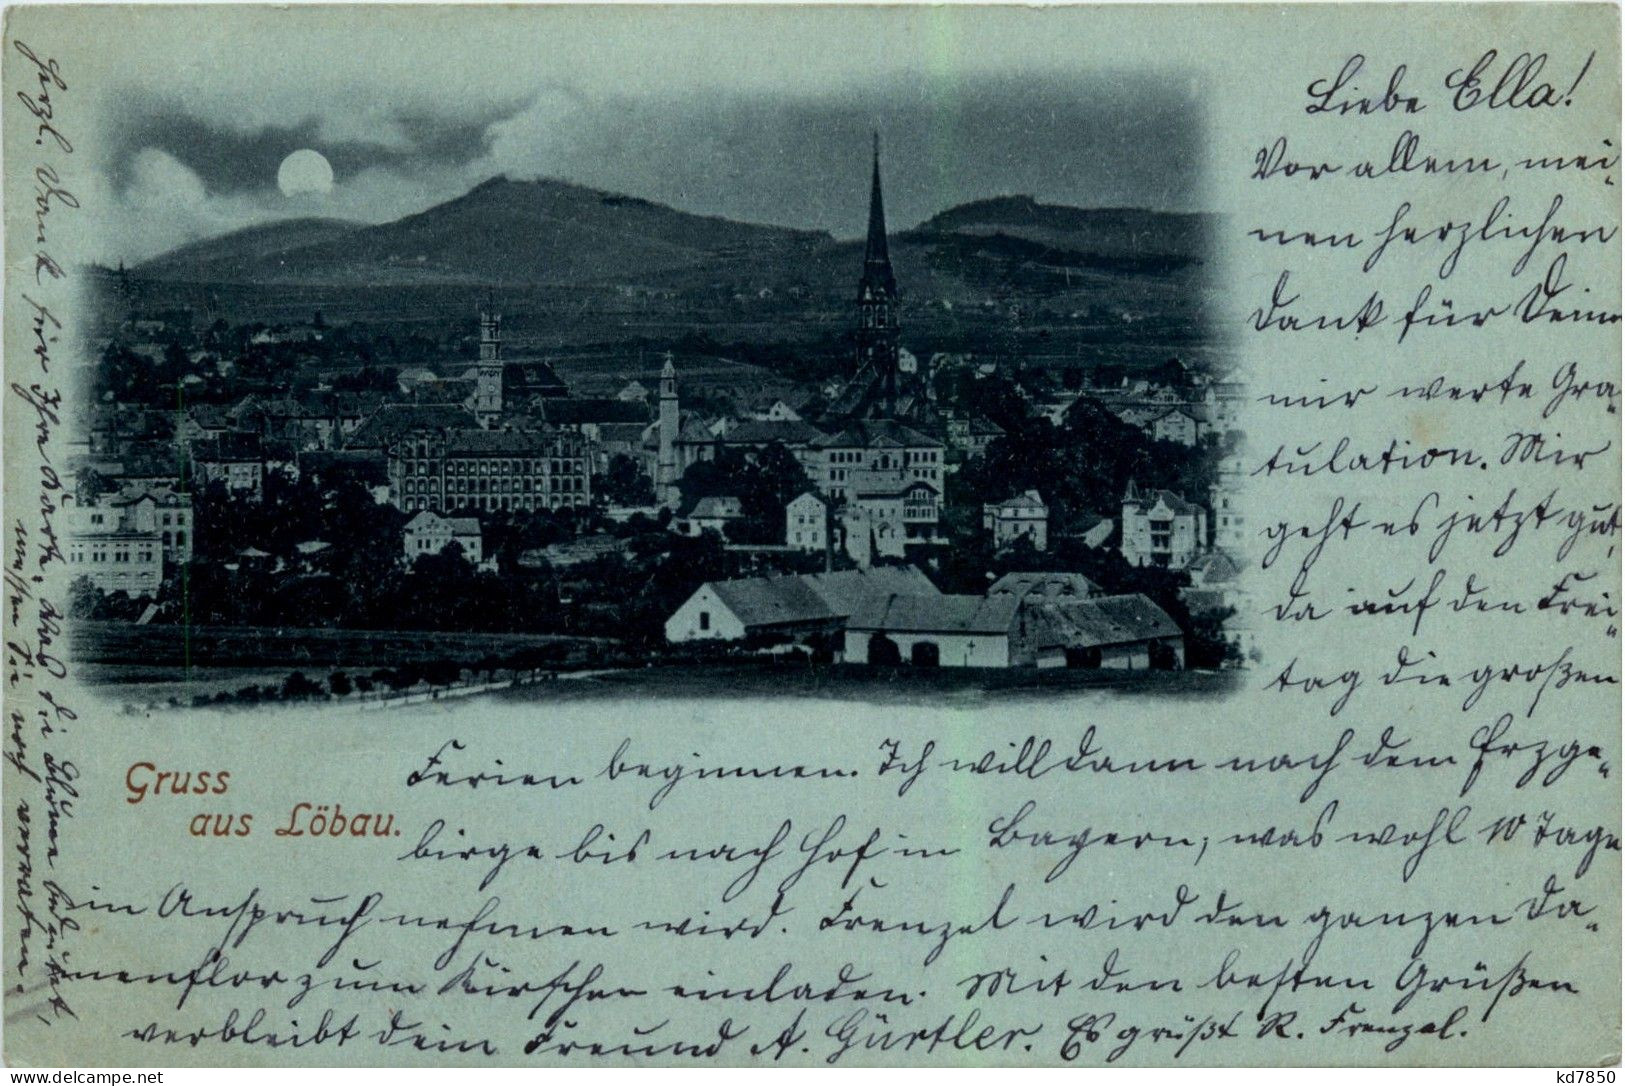 Liebe Ella!
Vor allem, mei-
nen herzlichen
Dank für Deine
mir werte Gra-
tulation. Mir
geht es jetzt gut,
da auf den Frei-
tag die großen
Ferien beginnen. Ich will dann nach dem Erzge-
birge bis nach Hof in Bayern, was wohl 10 Tage
in Anspruch nehmen wird. Frenzel wird den ganzen Da-
menflor zum Kirschen einladen. Mit den besten Grüßen
verbleibt dein Freund A. Gürtler. Es grüßt R. Frenzel.
Gruss
aus Löbau.
Herzl. Dank für Ihre Karte. Was die Blume bedeutet,
müssen Sie noch verraten.
kd7850
www.delcampe.net